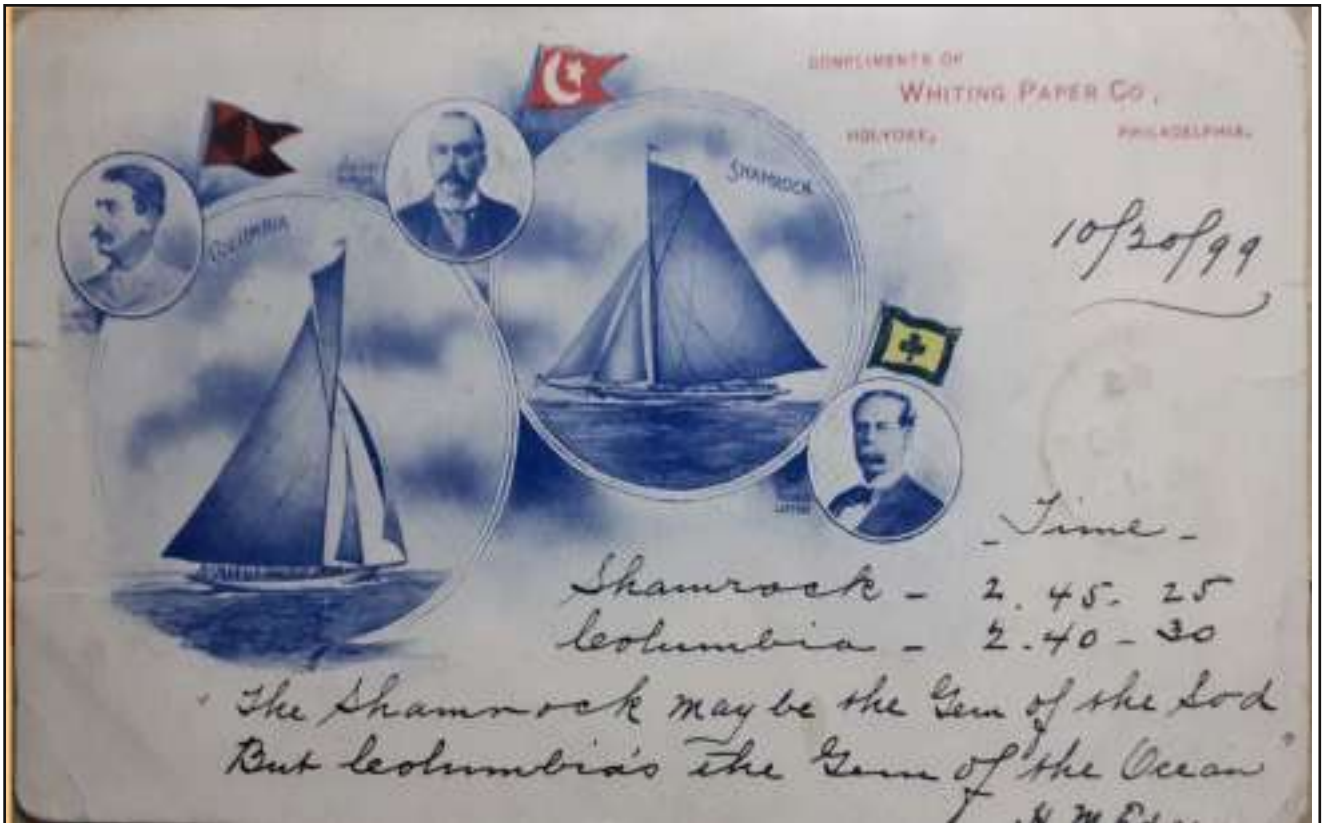 COMPLIMENTS OF
WHITING PAPER CO,
HOLYOKE, PHILADELPHIA.
COLUMBIA
SHAMROCK
10/20/99
LIPTON
- Time -
Shamrock - 2. 45. 25
Columbia - 2. 40 - 30
"The Shamrock may be the Gem of the Sod
But Columbia's the Gem of the Ocean"
H M